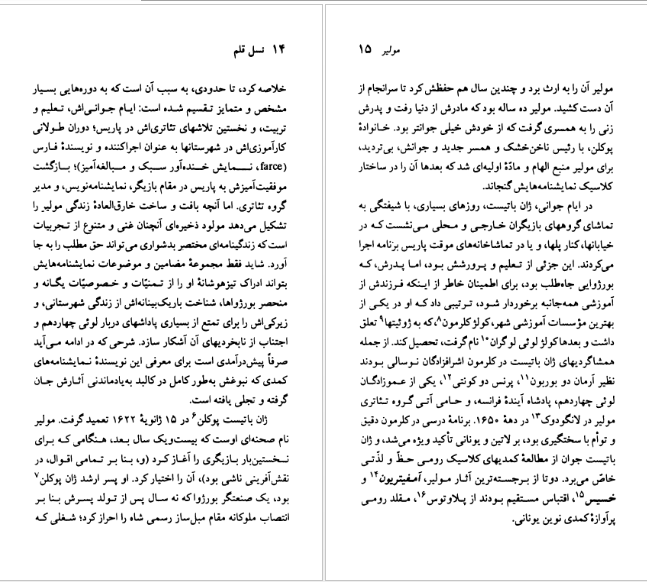 ۱۴ نسل قلم
خلاصه کرد، تا حدودی، به سبب آن است که به دوره‌هایی بسیار
مشخص و متمایز تقسیم شده است: ایام جوانی‌اش، تعلیم و
تربیت، و نخستین تلاشهای تئاتری‌اش در پاریس؛ دوران طولانی
کارآموزی‌اش در شهرستانها به عنوان اجراکننده و نویسندهٔ فارس
(farce، نمایش خنده‌آور سبک و مبالغه‌آمیز)؛ بازگشت
موفقیت‌آمیزش به پاریس در مقام بازیگر، نمایشنامه‌نویس، و مدیر
گروه تئاتری. اما آنچه بافت و ساخت خارق‌العادهٔ زندگی مولیر را
تشکیل می‌دهد مولود ذخیره‌ای آنچنان غنی و متنوع از تجربیات
است که زندگینامه‌ای مختصر بدشواری می‌تواند حق مطلب را به جا
آورد. شاید فقط مجموعهٔ مضامین و موضوعات نمایشنامه‌هایش
بتواند ادراک تیزهوشانهٔ او را از تمنیّات و خصوصیّات یگانه و
منحصر بورژواها، شناخت باریک‌بینانه‌اش از زندگی شهرستانی، و
زیرکی‌اش را برای تمتع از بسیاری پاداشهای دربار لوئی چهاردهم و
اجتناب از نابخردیهای آن آشکار سازد. شرحی که در ادامه می‌آید
صرفاً پیش‌درآمدی است برای معرفی این نویسندهٔ نمایشنامه‌های
کمدی که نبوغش به‌طور کامل در کالبد به‌یادماندنی آثارش جان
گرفته و تجلی یافته است.
ژان باتیست پوکلن⁶ در ۱۵ ژانویهٔ ۱۶۲۲ تعمید گرفت. مولیر
نام صحنه‌ای اوست که بیست‌ویک سال بعد، هنگامی که برای
نخستین‌بار بازیگری را آغاز کرد (و، بنا بر تمامی اقوال، در
نقش‌آفرینی ناشی بود)، آن را اختیار کرد. او پسر ارشد ژان پوکلن⁷
بود، یک صنعتگر بورژوا که نه سال پس از تولد پسرش بنا بر
انتصاب ملوکانه مقام مبل‌ساز رسمی شاه را احراز کرد؛ شغلی که
مولیر ۱۵
مولیر آن را به ارث برد و چندین سال هم حفظش کرد تا سرانجام از
آن دست کشید. مولیر ده ساله بود که مادرش از دنیا رفت و پدرش
زنی را به همسری گرفت که از خودش خیلی جوانتر بود. خانوادهٔ
پوکلن، با رئیس ناخن‌خشک و همسر جدید و جوانش، بی‌تردید،
برای مولیر منبع الهام و مادّهٔ اولیه‌ای شد که بعدها آن را در ساختار
کلاسیک نمایشنامه‌هایش گنجاند.
در ایام جوانی، ژان باتیست، روزهای بسیاری، با شیفتگی به
تماشای گروههای بازیگران خارجی و محلی می‌نشست که در
خیابانها، کنار پلها، و یا در تماشاخانه‌های موقت پاریس برنامه اجرا
می‌کردند. این جزئی از تعلیم و پرورشش بود، اما پدرش، که
بورژوایی جاه‌طلب بود، برای اطمینان خاطر از اینکه فرزندش از
آموزشی همه‌جانبه برخوردار شود، ترتیبی داد که او در یکی از
بهترین مؤسسات آموزشی شهر، کولژ کلرمون⁸، که به ژوئیتها⁹ تعلق
داشت و بعدها کولژ لوئی لوگران¹⁰ نام گرفت، تحصیل کند. از جمله
همشاگردیهای ژان باتیست در کلرمون اشرافزادگان نوسالی بودند
نظیر آرمان دو بوربون¹¹، پرنس دو کونتی¹²، یکی از عموزادگان
لوئی چهاردهم، پادشاه آیندهٔ فرانسه، و حامی آتی گروه تئاتری
مولیر در لانگودوک¹³ در دههٔ ۱۶۵۰. برنامهٔ درسی در کلرمون دقیق
و توأم با سختگیری بود، بر لاتین و یونانی تأکید ویژه می‌شد، و ژان
باتیست جوان از مطالعهٔ کمدیهای کلاسیک رومی حظّ و لذّتی
خاصّ می‌برد. دوتا از برجسته‌ترین آثار مولیر، آمفیتریون¹⁴ و
خسیس¹⁵، اقتباس مستقیم بودند از پلاوتوس¹⁶، مقلد رومی
پرآوازهٔ کمدی نوین یونانی.